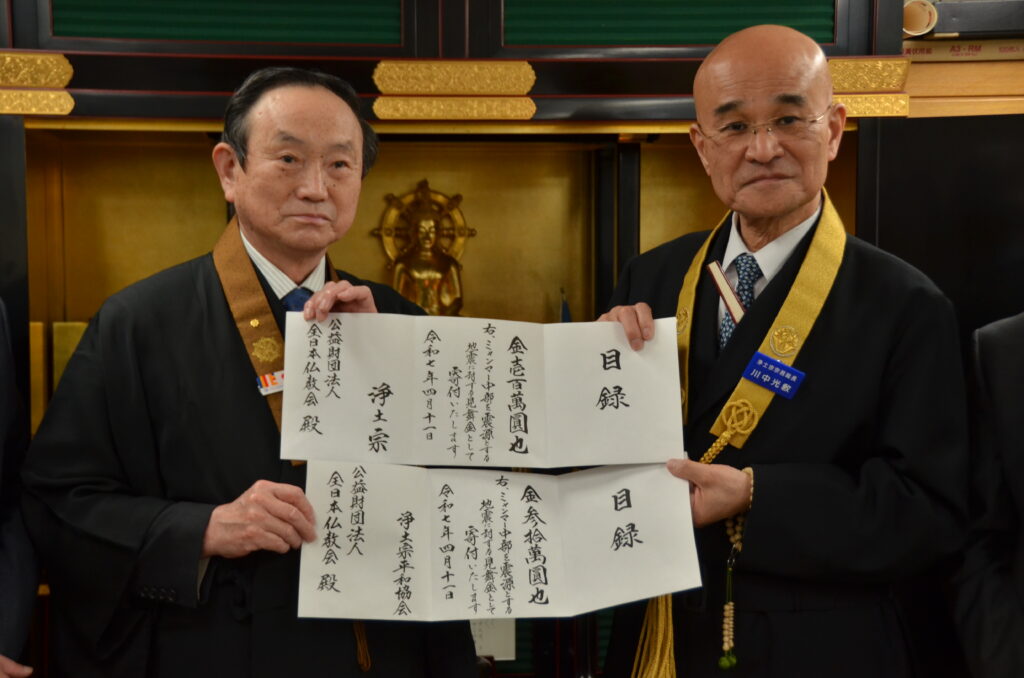 目録
金壱百萬圓也
右、ミャンマー中部を震源とする
地震に対する見舞金として
寄付いたします
令和七年四月十一日
浄土宗
公益財団法人
全日本仏教会 殿
目録
金参拾萬圓也
右、ミャンマー中部を震源とする
地震に対する見舞金として
寄付いたします
令和七年四月十一日
浄土宗平和協会
公益財団法人
全日本仏教会 殿
川中光敎
A3-RM